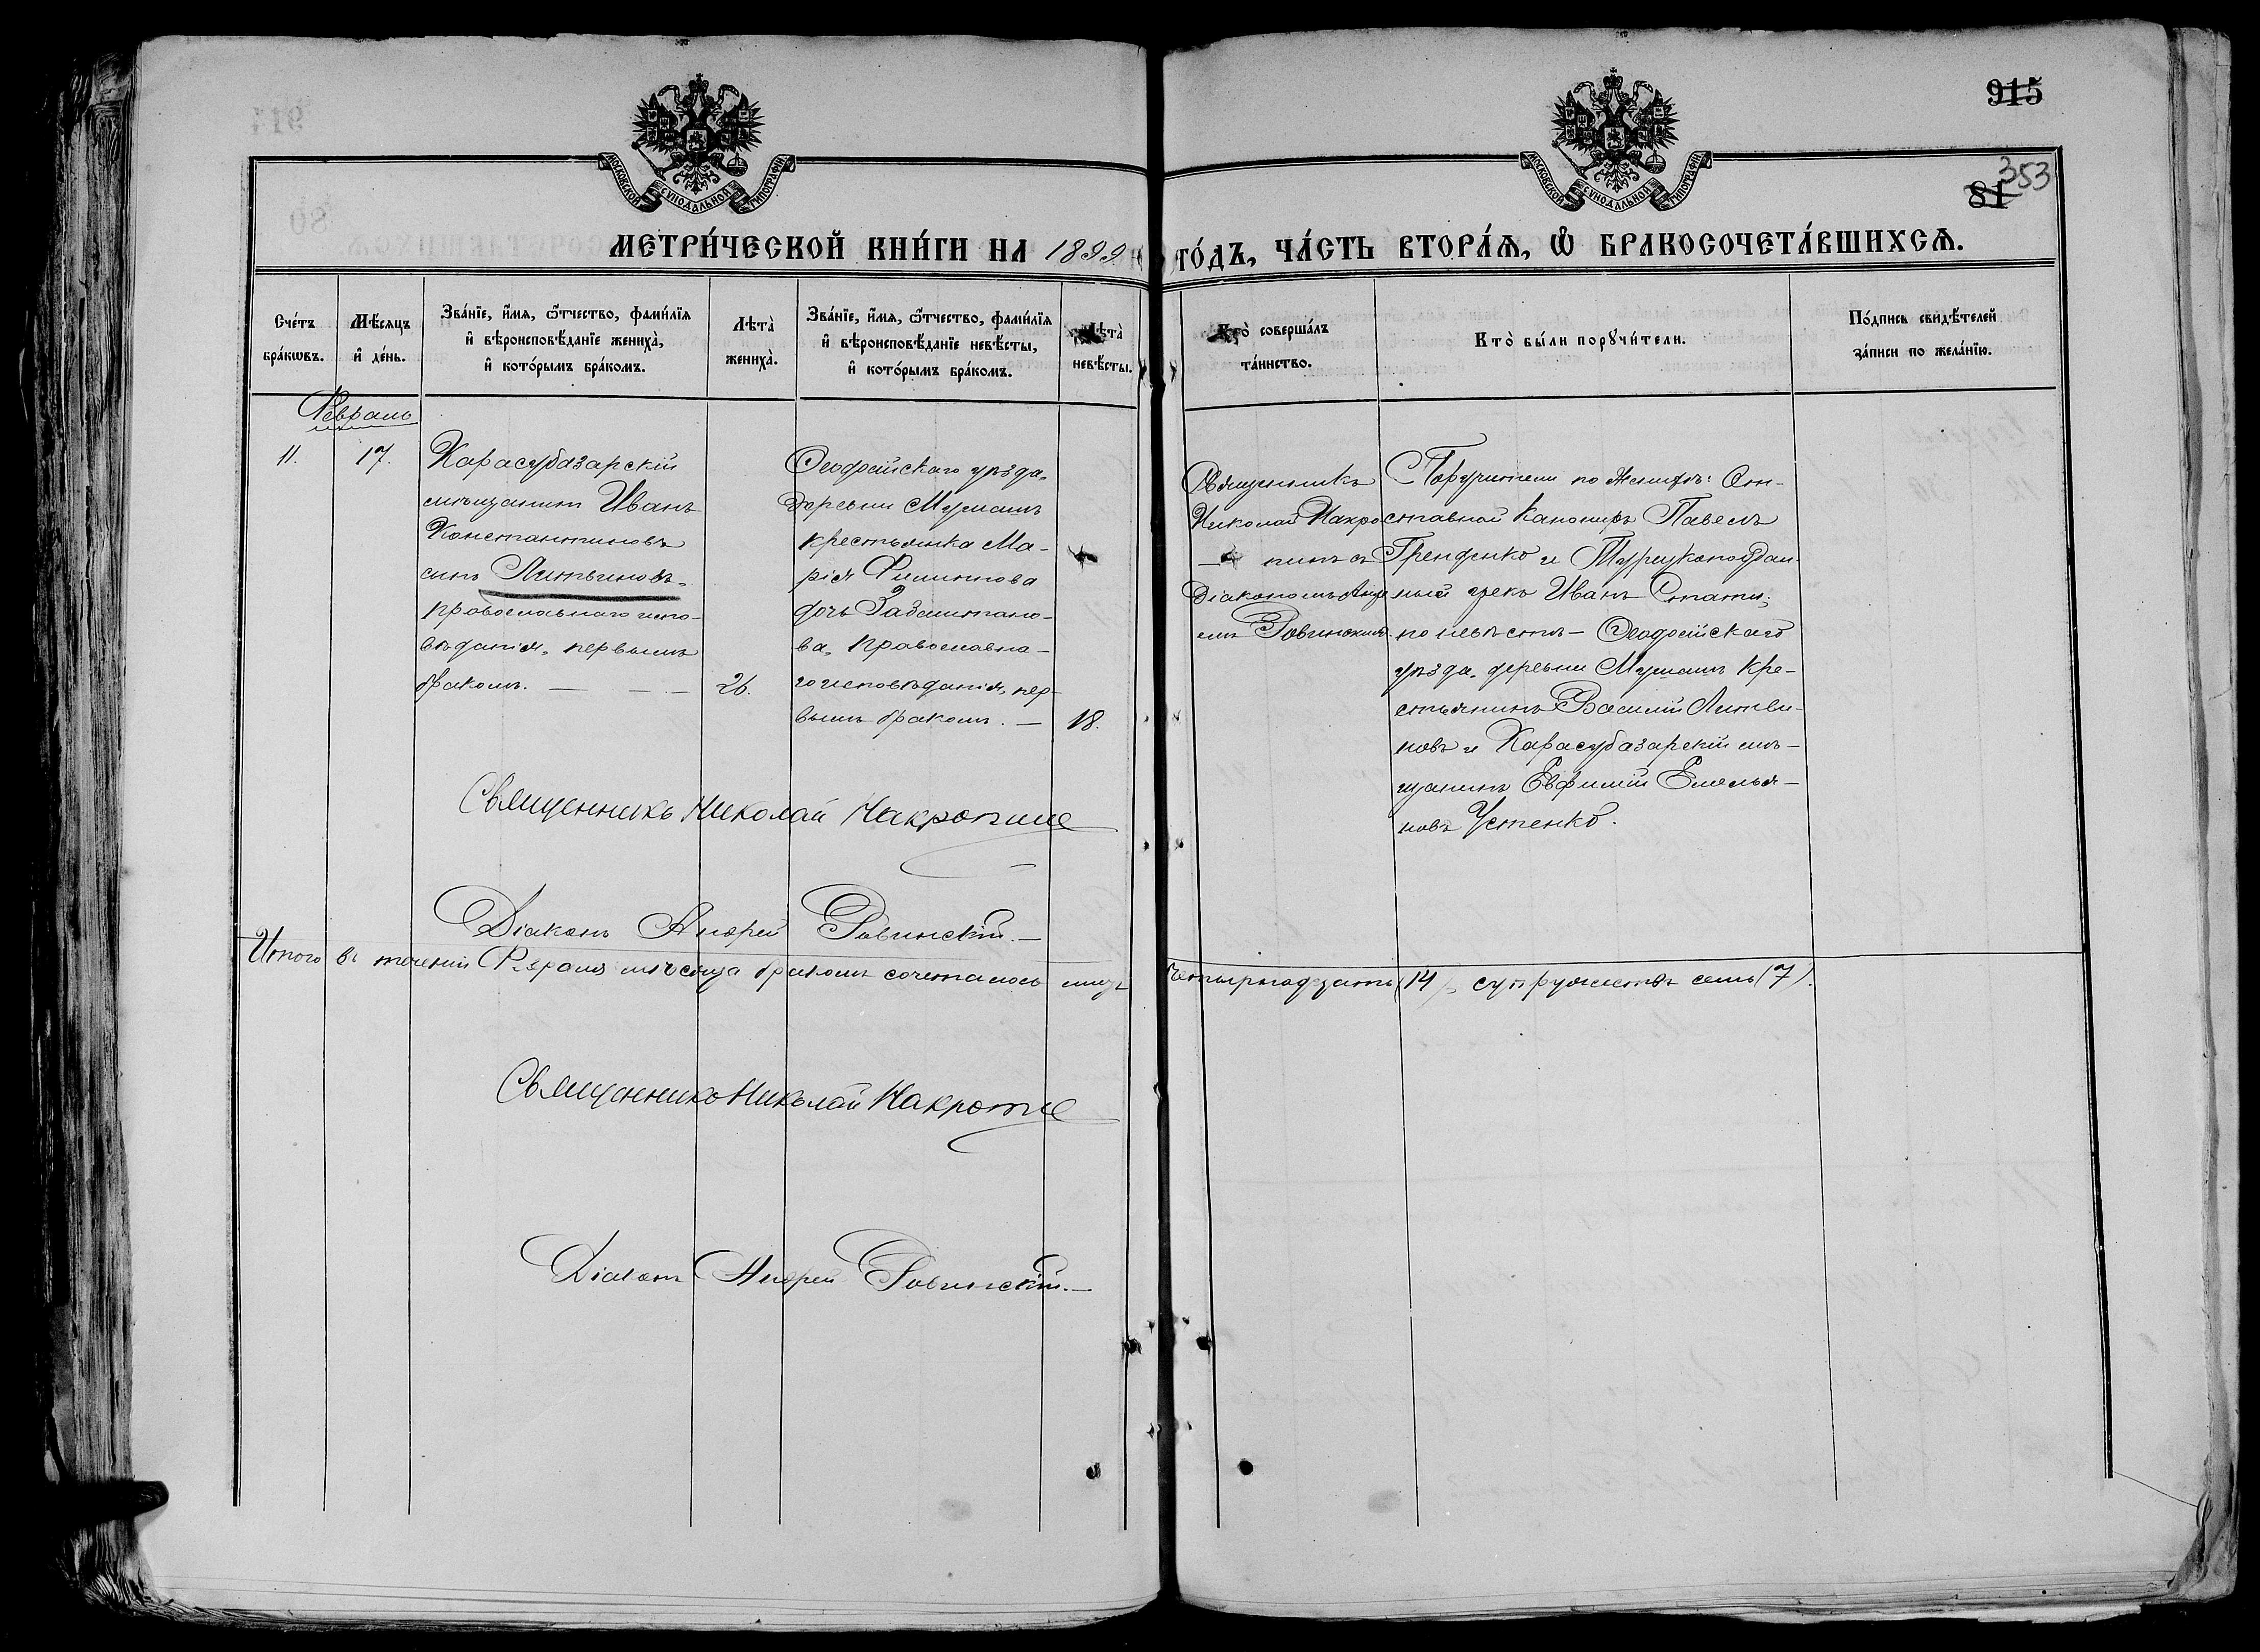 915
353
81
МОСКОВСКОЙ СѴНОДАЛЬНОЙ ТИПОГРАФІИ
МОСКОВСКОЙ СѴНОДАЛЬНОЙ ТИПОГРАФІИ
МЕТРИ́ЧЕСКОЙ КНИ́ГИ НА 1899
ГО́ДЪ, ЧА́СТЬ ВТОРА́Ѧ, Ѡ҆ БРАКОСОЧЕТА́ВШИХСѦ.
Сче́тъ
бра́кѡвъ.
Мѣ́сяцъ
и҆ де́нь.
Зва́нїе, и҆́мѧ, ѻ҆́тчество, фами́лїѧ
и҆ вѣроисповѣ́данїе жениха̀,
и҆ кото́рымъ бра́комъ.
Лѣта̀
жениха̀.
Зва́нїе, и҆́мѧ, ѻ҆́тчество, фами́лїѧ
и҆ вѣроисповѣ́данїе невѣ́сты,
и҆ кото́рымъ бра́комъ.
Лѣта̀
невѣ́сты.
Кто̀ соверша́лъ
та́инство.
Кто̀ бы́ли порꙋчи́тели.
По́дпись свидѣ́телей
за́писи по жела́нїю.
Февраль
11.
17.
Карасубазарскій
мѣщанинъ Иванъ
Константиновъ
сынъ Литвиновъ,
православнаго испо-
вѣданія, первымъ
бракомъ. — — —
26.
Ѳеодосійскаго уѣзда,
деревни Мушашъ
крестьянка Ма-
рія Филиппова
дочь
ва, православна-
го исповѣданія, пер-
вымъ бракомъ. —
18.
Священникъ
Николай Накро
— пинъ съ
Діакономъ Андре
емъ Ровинскимъ.
Поручители по женихѣ: От-
ставной канониръ Павелъ
Гренденко и Турецкоподдан-
ный грекъ Иванъ Стати;
по невѣстѣ — Ѳеодосійскаго
уѣзда, деревни Мушашъ кре-
стьянинъ Василій Литви-
новъ и Карасубазарскій мѣ-
щанинъ Евфимій Емелья-
новъ Устенко.
Священникъ Николай Накропинъ
Діаконъ Андрей Ровинскій. —
Итого въ теченіи Февраля мѣсяца бракомъ сочеталось лицъ четырнадцать (14), супружествъ семь (7).
Священникъ Николай Накропинъ
Діаконъ Андрей Ровинскій. —